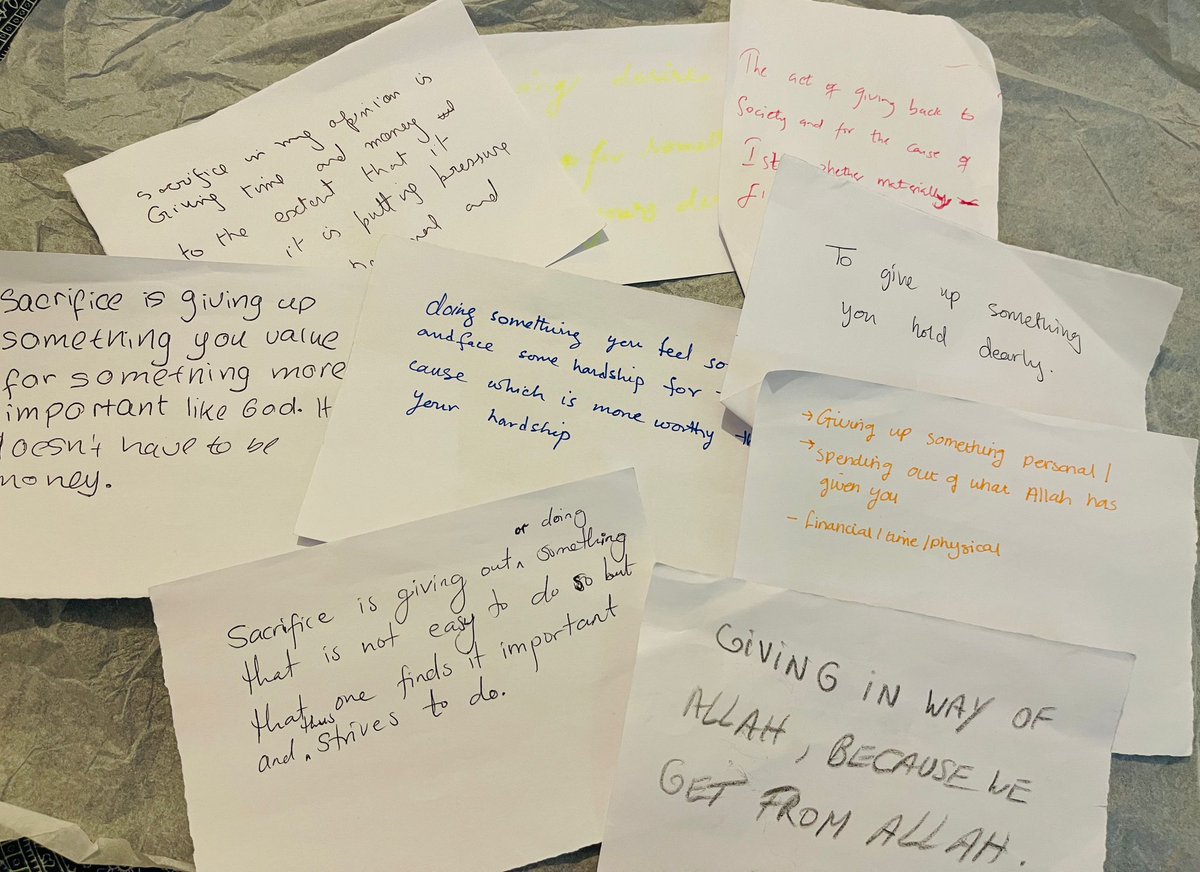 Sacrifice in my opinion is
Giving time and money
to the extent that it
it is putting pressure
and
desires
for
The act of giving back to
Society and for the cause of
whether materially
To give up something
you hold dearly.
Sacrifice is giving up
something you value
for something more
important like God. It
doesn't have to be
money.
doing something you feel so
and face some hardship for
cause which is more worthy
your hardship
→ Giving up something personal /
→ spending out of what Allah has
given you
- financial / time / physical
or doing
Sacrifice is giving out ^ something
that is not easy to do so but
that one finds it important
thus
and ^ strives to do.
GIVING IN WAY OF
ALLAH, BECAUSE WE
GET FROM ALLAH.